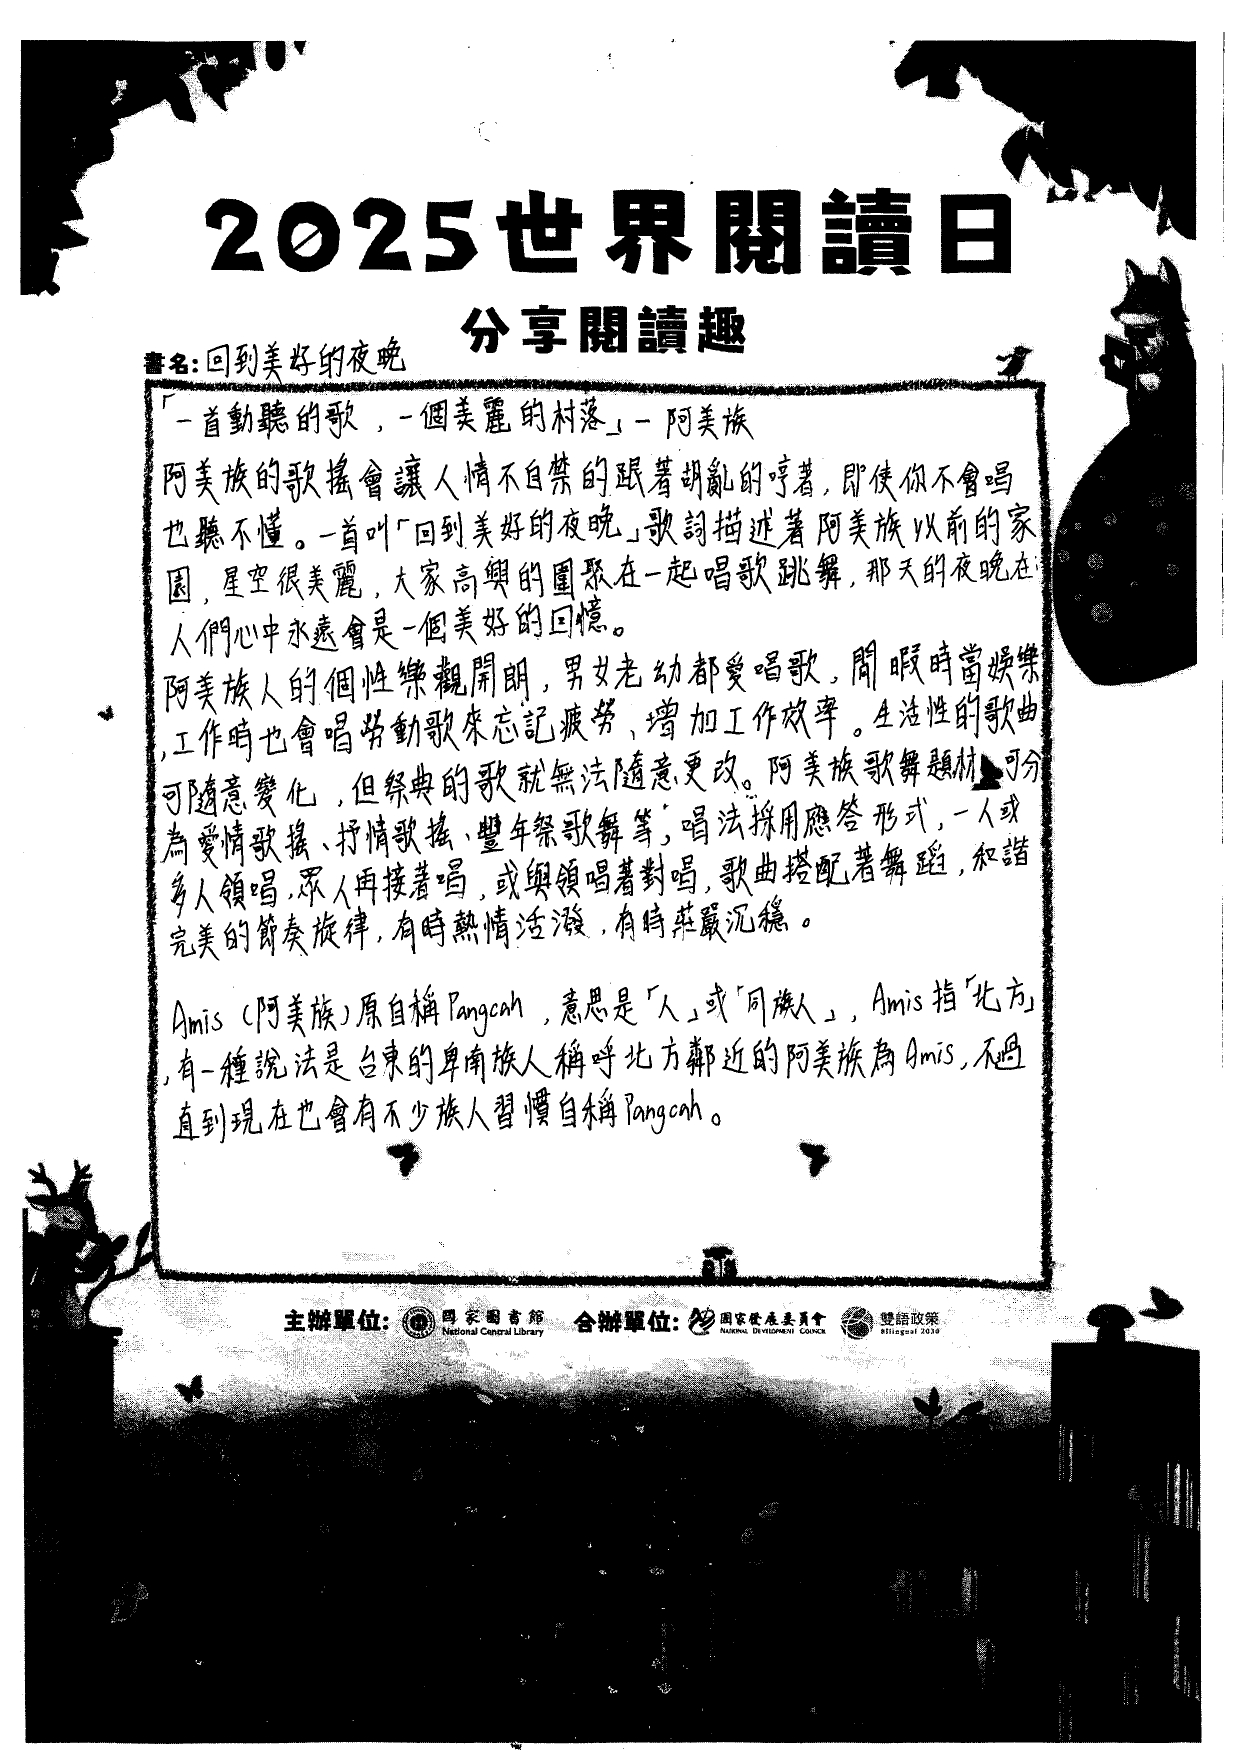 2025世界閱讀日
分享閱讀趣
書名:回到美好的夜晚
「一首動聽的歌,一個美麗的村落」-阿美族
阿美族的歌搖會讓人情不自禁的跟著胡亂的哼著,即使你不會唱
也聽不懂。一首叫「回到美好的夜晚」歌詞描述著阿美族以前的家
園,星空很美麗,大家高興的圍聚在一起唱歌跳舞,那天的夜晚在
人們心中永遠會是一個美好的回憶。
阿美族人的個性樂觀開朗,男女老幼都愛唱歌,閒暇時當娛樂
,工作時也會唱勞動歌來忘記疲勞、增加工作效率。生活性的歌曲
可隨意變化,但祭典的歌就無法隨意更改。阿美族歌舞題材 可分
為愛情歌搖、抒情歌搖、豐年祭歌舞等;唱法採用應答形式,一人或
多人領唱,眾人再接著唱,或與領唱著對唱,歌曲搭配著舞蹈,和諧
完美的節奏旋律,有時熱情活潑,有時莊嚴沉穩。
Amis(阿美族)原自稱Pangcah,意思是「人」或「同族人」,Amis指「北方」
,有一種說法是台東的卑南族人稱呼北方鄰近的阿美族為Amis,不過
直到現在也會有不少族人習慣自稱Pangcah。
主辦單位: 國家圖書館 National Central Library 合辦單位: 國家發展委員會 NATIONAL DEVELOPMENT COUNCIL 雙語政策 Bilingual 2030